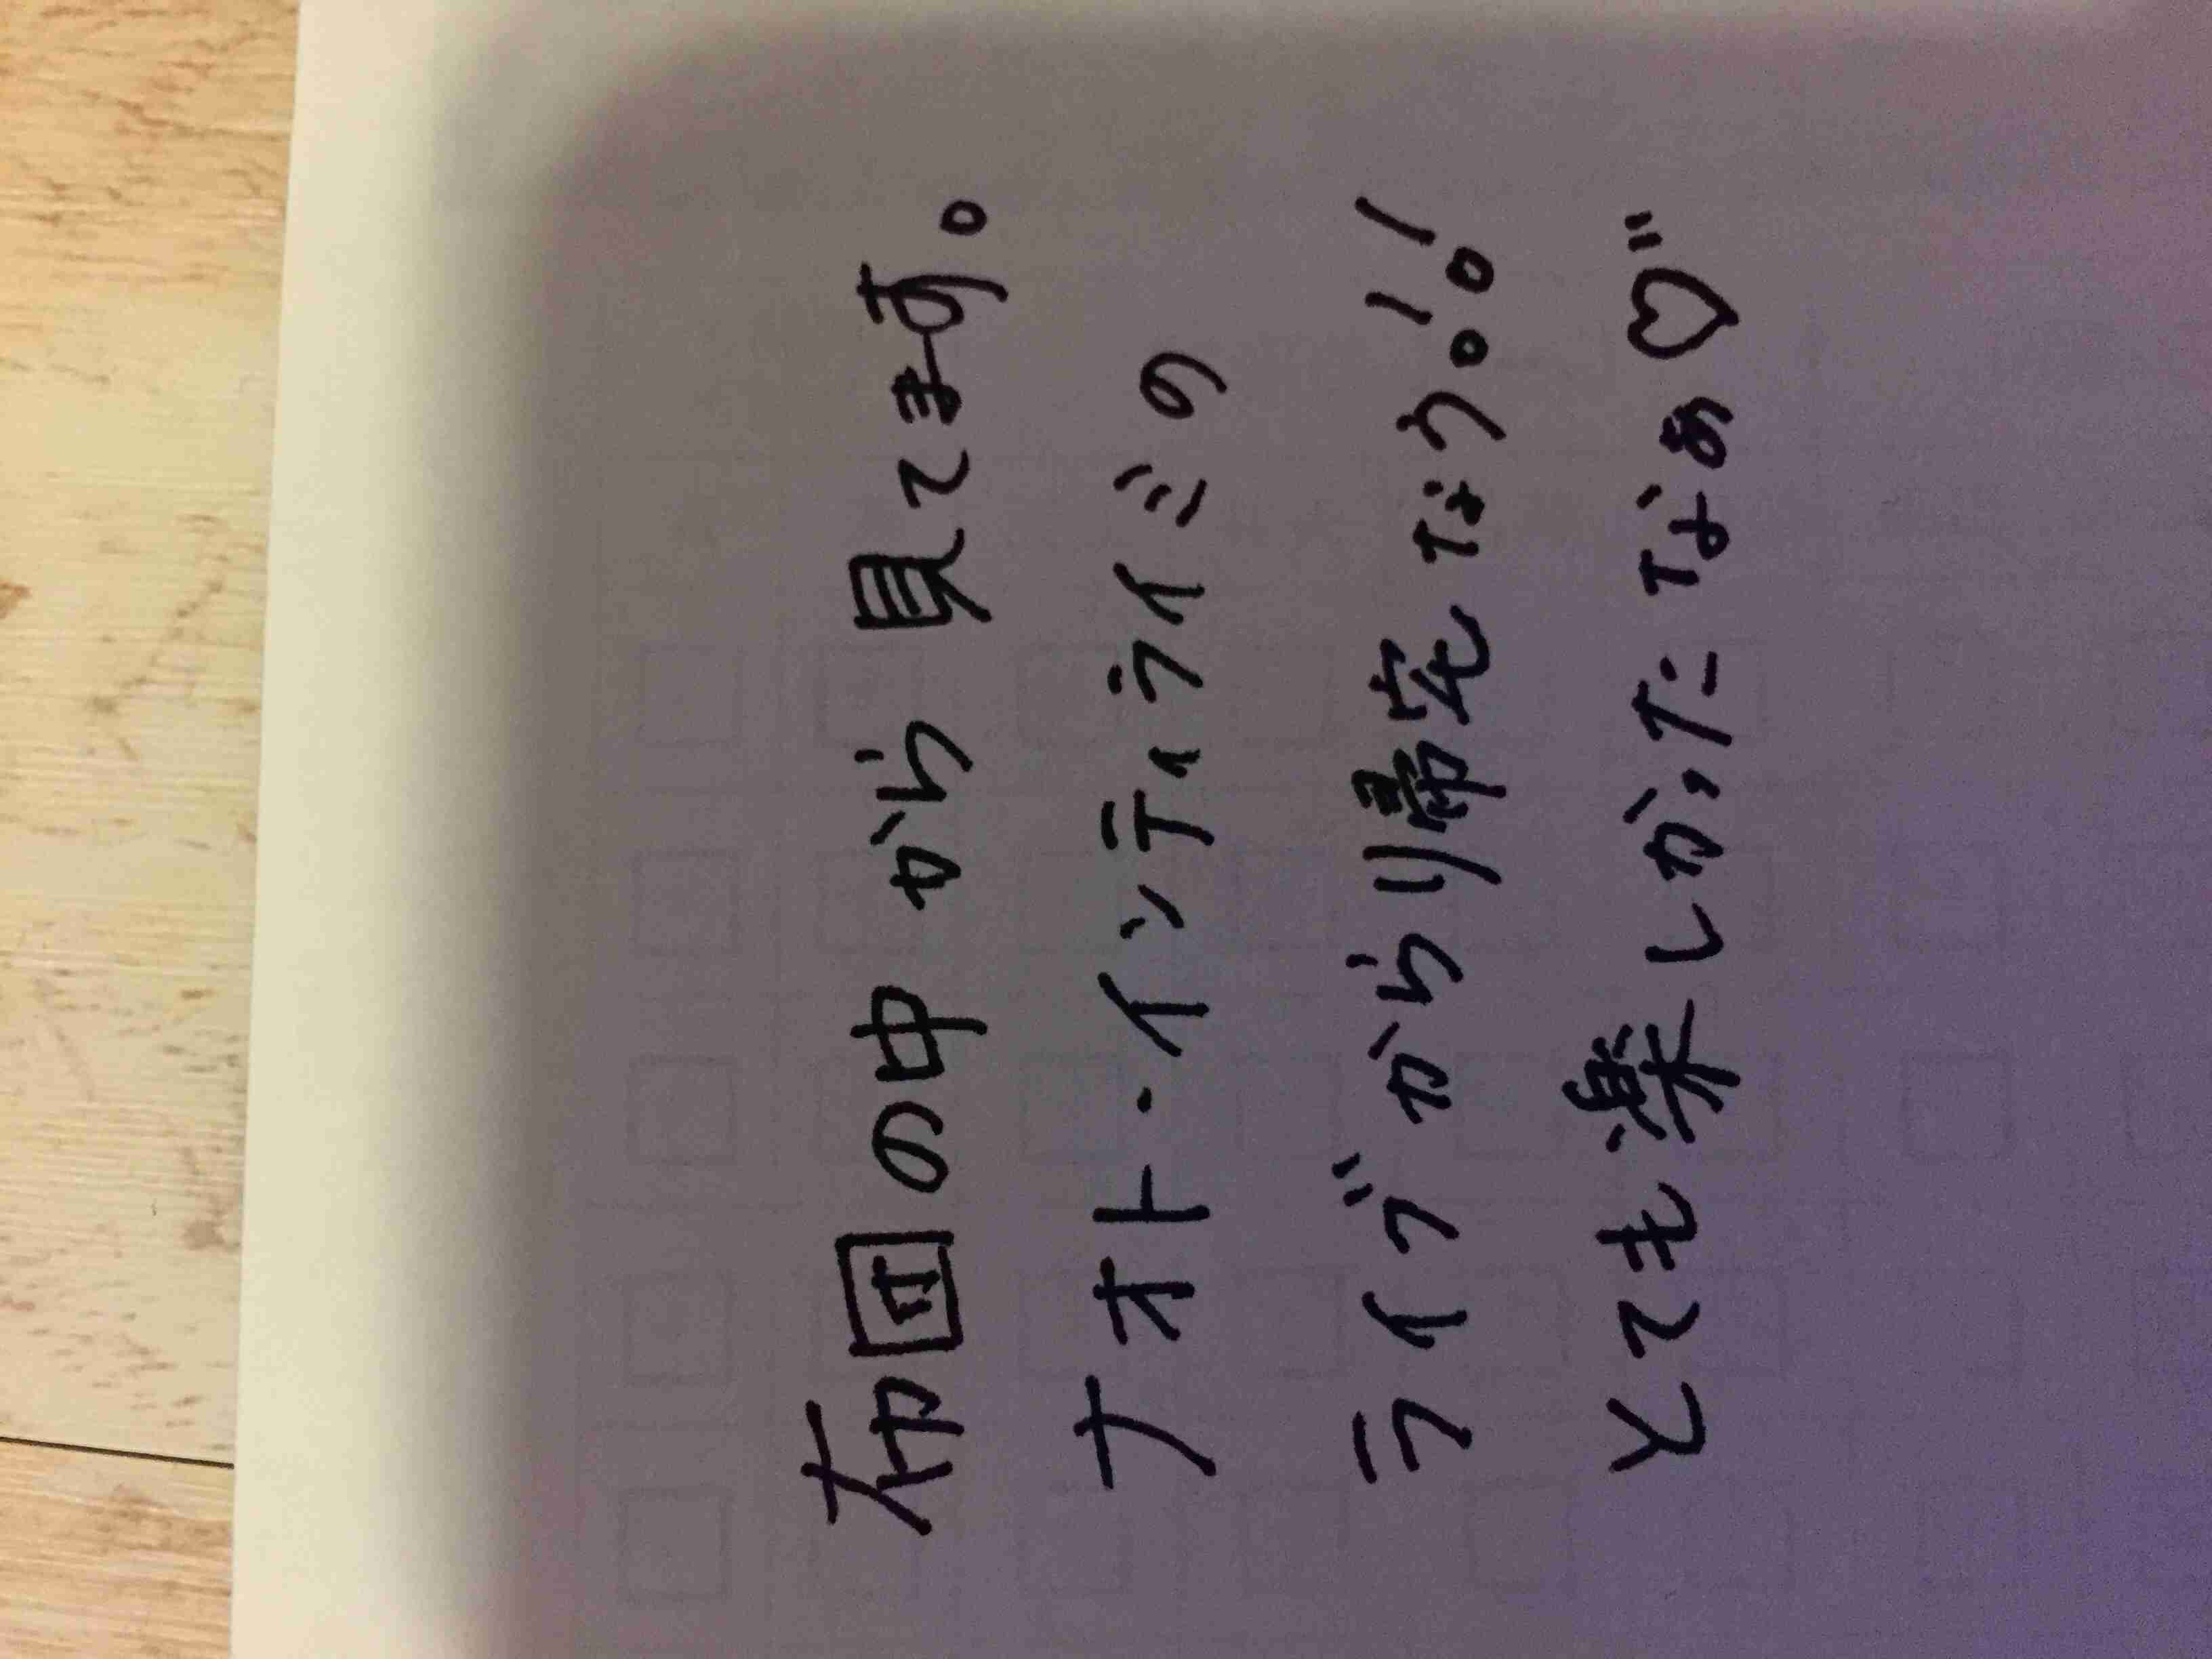 布団の中から見てます。
ナオト・インティライミの
ライブから帰宅なう!!
とても楽しかったなぁ♡"